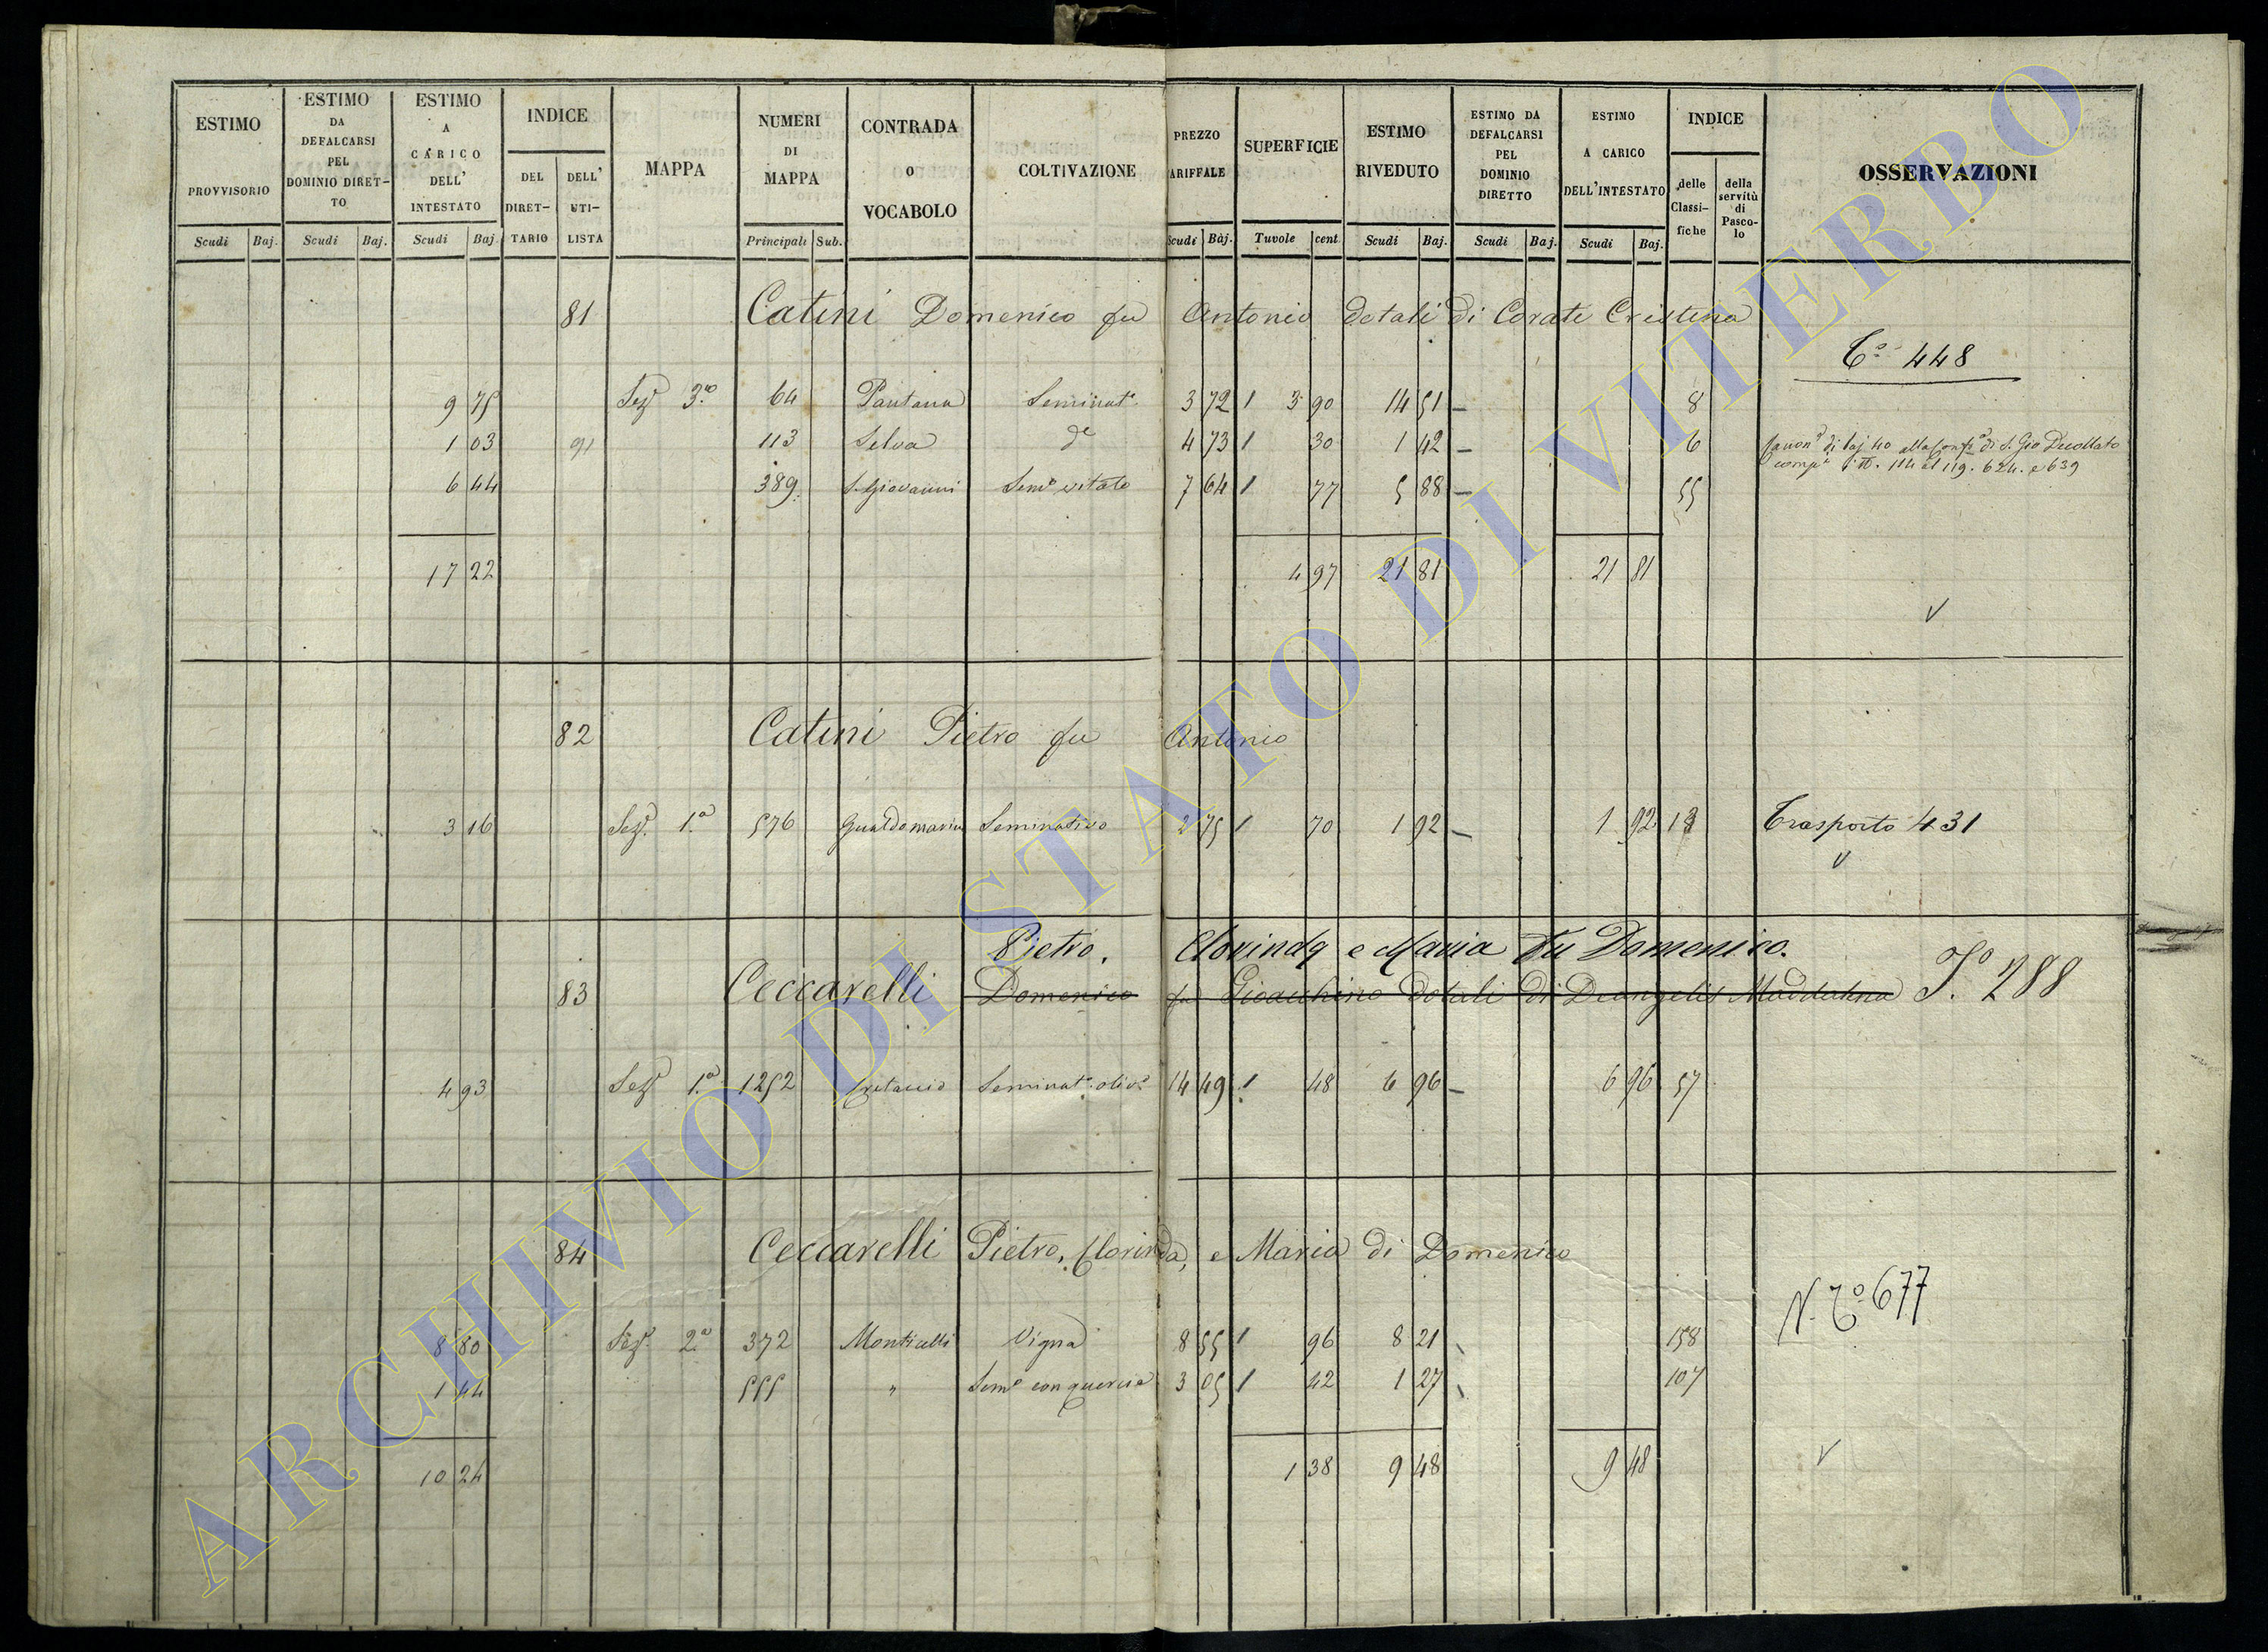 ESTIMO PROVVISORIO
ESTIMO DA DEFALCARSI PEL DOMINIO DIRET-TO
ESTIMO A CARICO DELL' INTESTATO
INDICE
DEL DIRET-TARIO
DELL' UTI-LISTA
MAPPA
NUMERI DI MAPPA
CONTRADA O VOCABOLO
COLTIVAZIONE
PREZZO ARIFFALE
SUPERFICIE
ESTIMO RIVEDUTO
ESTIMO DA DEFALCARSI PEL DOMINIO DIRETTO
ESTIMO A CARICO DELL'INTESTATO
INDICE
delle Classi-fiche
della servitù di Pasco-lo
OSSERVAZIONI
Scudi Baj. Scudi Baj. Scudi Baj. Principali Sub. Scudi Baj. Tuvole cent Scudi Baj. Scudi Baj. Scudi Baj.
81 Catini Domenico fu Antonio dotali di Corati Cristina
To 448
9 75 Seze 3a 64 Pantana Seminato 3 72 1 3 90 14 51 — 8
1 03 91 113 Selva do 4 73 1 30 1 42 — 6 di baj 40 alla di S. Gio Decollato
114 al 119. 624. e 639
6 44 389. S. Giovanni Semo vitato 7 64 1 77 5 88 — 55
17 22 4 97 21 81 21 81
V
82 Catini Pietro fu Antonio
3 16 Seze 1a 576 Gualdomarino Seminativo 2 75 1 70 1 92 — 1 92 13 Trasporto 431
V
Pietro, Clorinda e Maria fu Domenico.
83 Ceccarelli Domenico fu Gioacchino dotali di Deangelis Maddalena To 288
4 93 Seze 1a 1252 Cretaccio Seminato olivo 14 49 1 48 6 96 — 6 96 57
84 Ceccarelli Pietro, Clorinda, e Maria di Domenico
N. To 677
8 80 Seze 2a 372 Monticelli Vigna 8 55 1 96 8 21 158
1 44 555 " Semo con quercie 3 05 1 42 1 27 107
10 24 1 38 9 48 9 48
V
ARCHIVIO DI STATO DI VITERBO